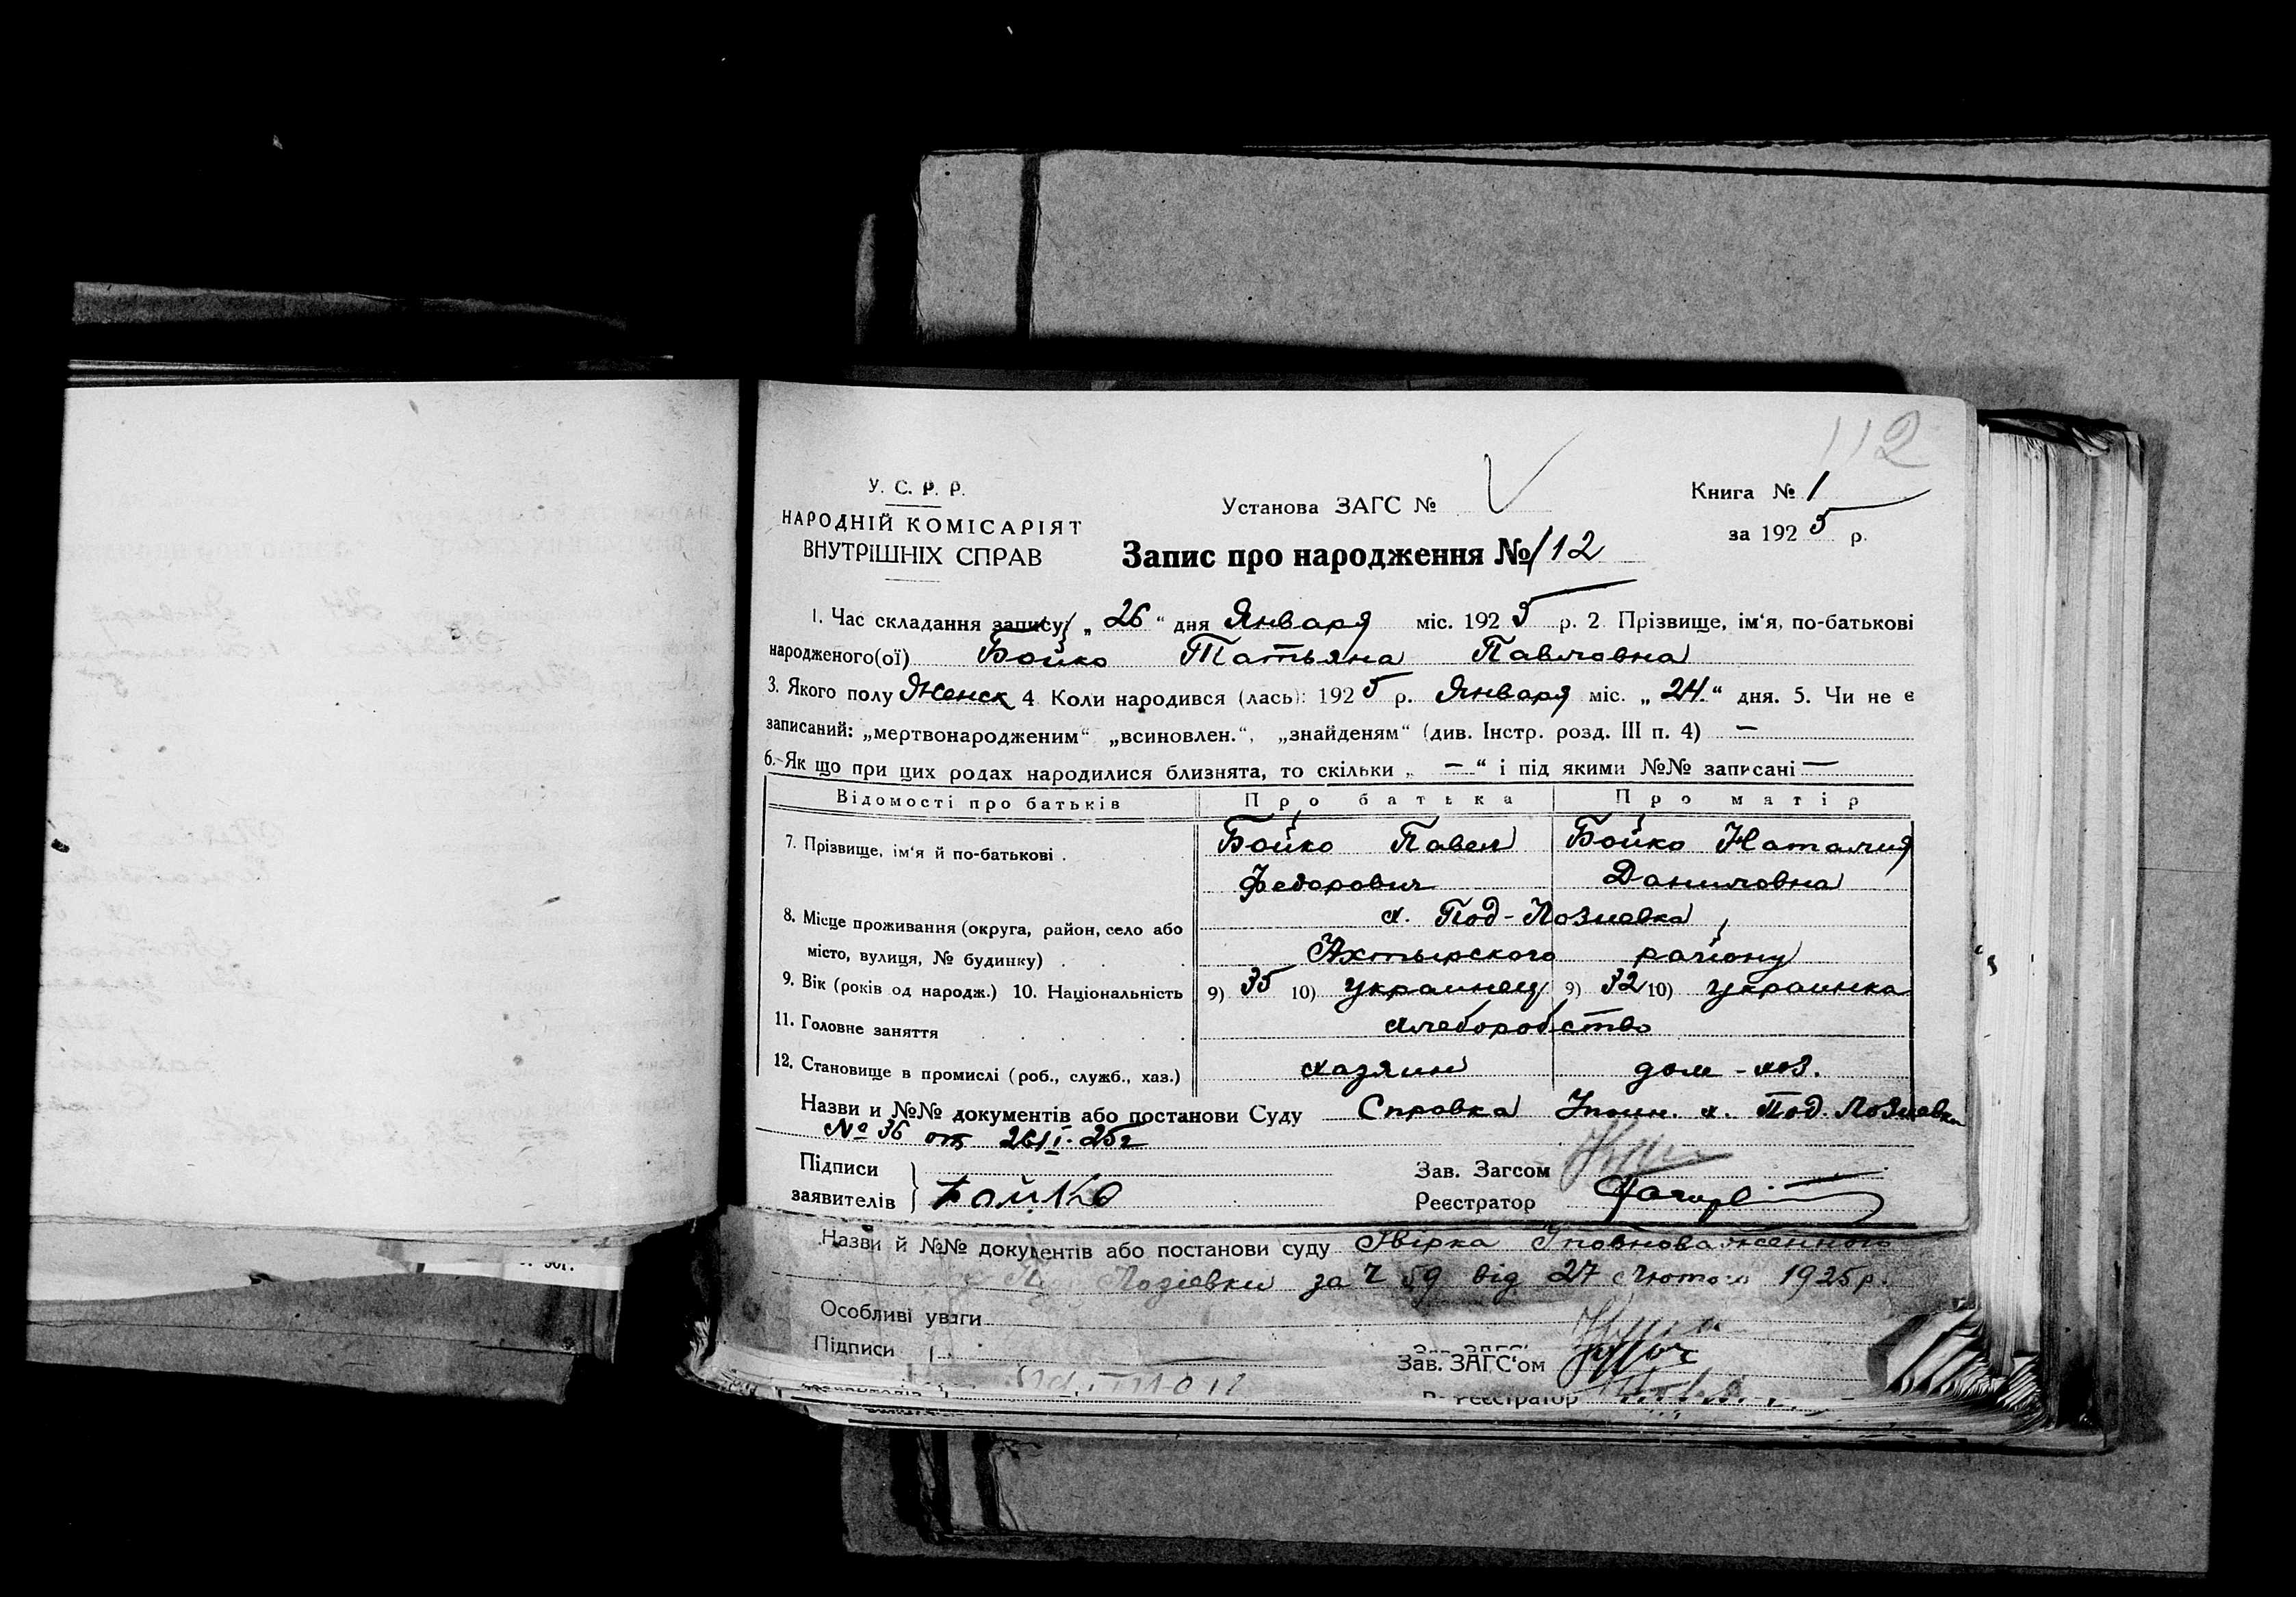 112
У. С. Р. Р.
НАРОДНІЙ КОМІСАРІЯТ
ВНУТРІШНІХ СПРАВ
Установа ЗАГС №
Книга № 1
за 1925 р.
Запис про народження № 112
1. Час складання запису „26“ дня Января міс. 1925 р. 2. Прізвище, ім‘я, по-батькові
народженого(ої) Бойко Татьяна Павловна
3. Якого полу Женск 4 Коли народився (лась): 1925 р. Января міс. „24.“ дня. 5. Чи не є
записаний: „мертвонародженим“ „всиновлен.“, „знайденям“ (див. Інстр. розд. III п. 4) —
6. Як що при цих родах народилися близнята, то скільки „ — “ і під якими №№ записані —
Відомості про батьків Про батька Про матір
7. Прізвище, ім‘я й по-батькові . Бойко Павел Бойко Наталия
Федорович Даниловна
8. Місце проживання (округа, район, село або х. Под-Лозиевка
місто, вулиця, № будинку) . . . Ахтырского району
9. Вік (років од народж.) 10. Національність 9) 35 10) украинец 9) 32 10) украинка
11. Головне заняття . . . . . . хлеборобство
12. Становище в промислі (роб., служб., хаз.) хазяин дом-хоз.
Назви и №№ документів або постанови Суду Справка х. Под. Лозиевки
№ 36 от 26/I-25г
Підписи
заявителів Бойко
Зав. Загсом
Реєстратор
Назви й №№ документів або постанови суду Уповноваженного
Лозіевки за Ч 59 від 27 Лютого 1925 р.
Особливі уваги
Підписи
Зав. ЗАГС‘ом
Реєстратор